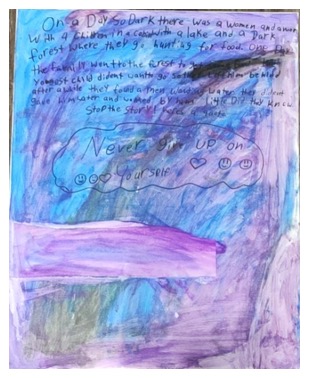 On a Day so Dark there was a women and a man
with 4 children in a cabin with a lake and a Dark
forest where they go hunting for food. One
the family went to the forest to get
Youngest child dident want to go so they left her behind
after awhile they found a men want water they dident
him water and by him. Little Did they know
Stop the story! here's a quote
Never give up on
yourself